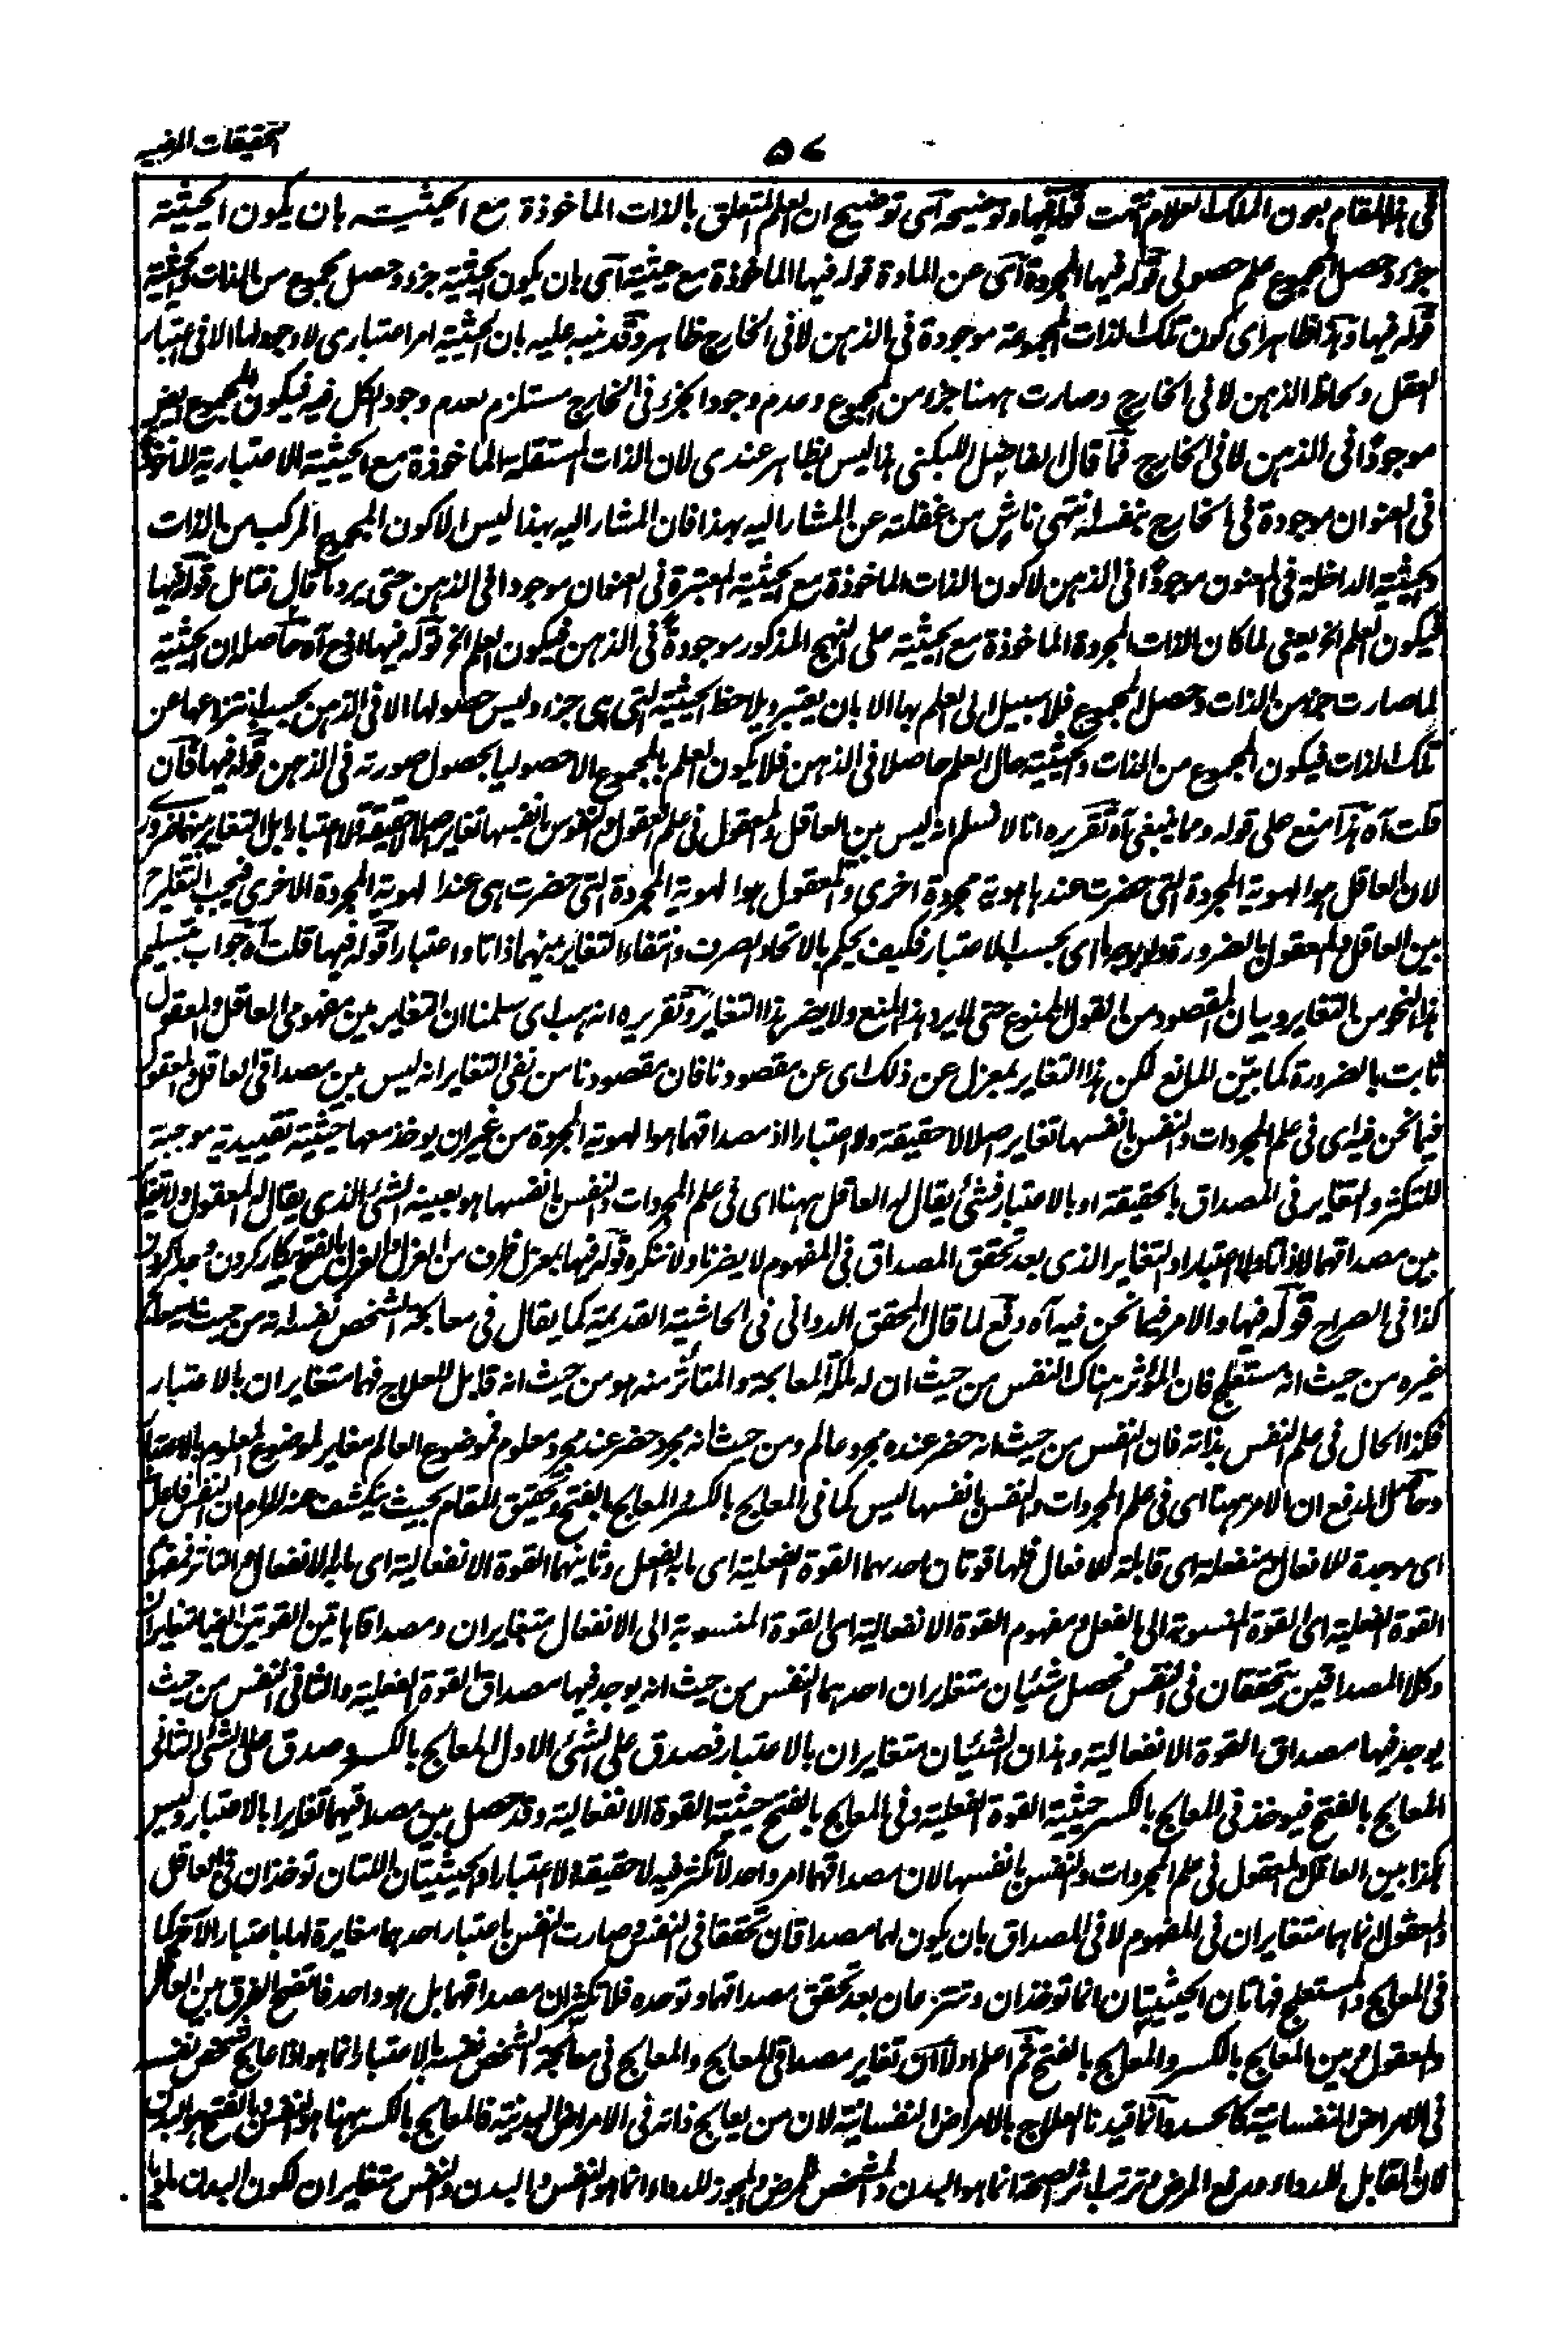 التحقيقات المرضيه
٥٧
فى هذا المقام بعون الملك العلام تمت قوله فيها وتوضيحه آى توضيح ان العلم المتعلق بالذات المأخوذة مع الحيثيته بان يكون الحيثية
جزء وحصل المجموع علم حصولى قوله فيها المجردة آى عن المادة قوله فيها الماخوذة مع حيثية آى بان يكون الحيثية جزء وحصل مجموع من الذات والحيثية
قوله فيها وهذا ظاهر اى كون تلك الذات المجموعة موجودة فى الذهن لا فى الخارج ظاهر وقد نبه عليه بان الحيثية امر اعتبارى لا وجود لها الا فى اعتبار
العقل ولحاظ الذهن لا فى الخارج وصارت ههنا جزء من المجموع وعدم وجود الجزء فى الخارج مستلزم لعدم وجود الكل فيه فيكون المجموع ايض
موجودًا فى الذهن لا فى الخارج فما قال الفاضل اللبكنى هذا ليس بظاهر عندى لان الذات المستقلة الماخوذة مع الحيثية الاعتبارية الماخوذة
فى العنوان موجودة فى الخارج بنفسه انتهى ناش من غفلته عن المشار اليه بهذا فان المشار اليه بهذا ليس الا كون المجموع المركب من الذات
والحيثية الداخلة فى المعنون موجودًا فى الذهن لا كون الذات الماخوذة مع الحيثية المعتبرة فى العنوان موجودا فى الذهن حتى يرد ما قال فتامل قوله فيها
فيكون العلم الخ يعنى لما كان الذات المجردة الماخوذة مع الحيثية على النهج المذكور موجودة فى الذهن فيكون العلم الخ قوله فيها لانح آه حاصله ان الحيثية
لما صارت جزء من الذات وحصل المجموع فلا سبيل الى العلم بها الا بان يعتبر ويلاحظ الحيثية التى هى جزء وليس حصولها الا فى الذهن بحسب انتزاعها عن
تلك الذات فيكون المجموع من الذات والحيثية حال العلم حاصلا فى الذهن فلا يكون العلم بالمجموع الا حصوليا بحصول صورته فى الذهن قوله فيها فان
قلت آه هذا منع على قوله ومما ينبغى آه تقريره انا لا نسلم انه ليس بين العاقل والمعقول فى علم العقول والنفوس بانفسها تغاير اصلا لا حقيقة ولا اعتبارا بل التغاير بينهما ضرورى
لان العاقل هو الهوية المجردة التى حضرت عندها هوية مجردة اخرى والمعقول هو الهوية المجردة التى حضرت هى عند الهوية المجردة الاخرى فيجب التغاير
بين العاقل والمعقول بالضرورة اى بحسب الاعتبار فكيف يحكم بالاتحاد الصرف وانتفاء التغاير بينهما ذاتا واعتبارا قوله فيها قلت آه جواب بتسليم
هذا النحو من التغاير وبيان المقصود من القول الممنوع حتى لا يرد هذا المنع ولا يضر هذا التغاير وتقريره انه هب اى سلمنا ان التغاير بين مفهومى العاقل والمعقول
ثابت بالضرورة كما بين المانع لكن هذا التغاير بمعزل عن ذلك اى عن مقصودنا فان مقصودنا من نفى التغاير انه ليس بين مصداقى العاقل والمعقول
فيما نحن فيه اى فى علم المجردات والنفس بانفسها تغاير اصلا لا حقيقة ولا اعتبارا اذ مصداقهما هو الهوية المجردة من غير ان يوخذ معها حيثية تقييدية موجبة
للتكثر والتغاير فى المصداق بالحقيقة او بالاعتبار فشئ يقال له العاقل ههنا اى فى علم المجردات والنفس بانفسها هو بعينه الشئ الذى يقال له المعقول ولا تغاير
بين مصداقهما لا ذاتا ولا اعتبارا والتغاير الذى بعد تحقق المصداق فى المفهوم لا يضرنا ولا ننكره قوله فيها بمعزل ظرف من العزل والعزل بالفتح بيكار كردن وجدا كردن
كذا فى الصراح قوله فيها والامر فيما نحن فيه آه دفع لما قال المحقق الدوانى فى الحاشية القديمة كما يقال فى معالجة الشخص نفسه انه من حيث انه
غيره من حيث انه مستعلج فان المؤثر هناك النفس من حيث ان له ملكة المعالجة والمتاثر منه هو من حيث انه قابل للعلاج فهما متغايران بالاعتبار
فكذا الحال فى علم النفس بذاته فان النفس من حيث انه حضر عنده مجرد عالم ومن حيث انه مجرد حضر عند مجرد معلوم فموضوع العالم مغاير لموضوع المعلوم بالاعتبار
وحاصل الدفع ان الامر ههنا اى فى علم المجردات والنفس بانفسها ليس كما فى المعالج بالكسر والمعالج بالفتح وتحقيق المقام بحيث ينكشف عنه المرام ان النفس فاعل
اى موجدة للافعال ومنفعلة اى قابلة للانفعال فلها قوتان احدهما القوة الفعلية اى ما به الفعل وثانيهما القوة الانفعالية اى ما به الانفعال والتاثر فمفهوم
القوة الفعلية اى القوة المنسوبة الى الفعل ومفهوم القوة الانفعالية اى القوة المنسوبة الى الانفعال متغايران ومصداقا هاتين القوتين ايضا متغايران
وكلا المصداقين يتحققان فى النفس فحصل شيئان متغايران احدهما النفس من حيث انه يوجد فيها مصداق القوة الفعلية والثانى النفس من حيث
يوجد فيها مصداق القوة الانفعالية وهذان الشيئان متغايران بالاعتبار فصدق على الشئ الاول المعالج بالكسر وصدق على الشئ الثانى
المعالج بالفتح فيوخذ فى المعالج بالكسر حيثية القوة الفعلية وفى المعالج بالفتح حيثية القوة الانفعالية وقد حصل بين مصداقيهما تغايرا بالاعتبار وليس
هكذا بين العاقل والمعقول فى علم المجردات والنفس بانفسها لان مصداقهما امر واحد لا تكثر فيه لا حقيقة ولا اعتبارا والحيثيتان اللتان توخذان فى العاقل
والمعقول انما هما متغايران فى المفهوم لا فى المصداق بان يكون لهما مصداقان تحققا فى النفس وصارت النفس باعتبار احدهما مغايرة لها باعتبار الآخر كما
فى المعالج والمستعلج فهاتان الحيثيتان انما توخذان وتنتزعان بعد تحقق مصداقهما وتوحده فلا تكثران مصداقهما بل هو واحد فاتضح الفرق بين العاقل
والمعقول وبين المعالج بالكسر والمعالج بالفتح ثم اعلم اولا ان تغاير مصداقى المعالج والمعالج فى معالجة الشخص نفسه بالاعتبار انما هو اذا عالج شخص نفسه
فى الامراض النفسانية كالحسد وانما قيدنا العلاج بالامراض النفسانية لان من يعالج ذاته فى الامراض البدنية فالمعالج بالكسر ههنا هو النفس وبالفتح هو البدن
لان المقابل للدواء ودفع المرض وترتب اثر الصحة انما هو البدن والمشخص للمرض والمجوز للدواء انما هو النفس والبدن والنفس متغايران لكون البدن ماديا